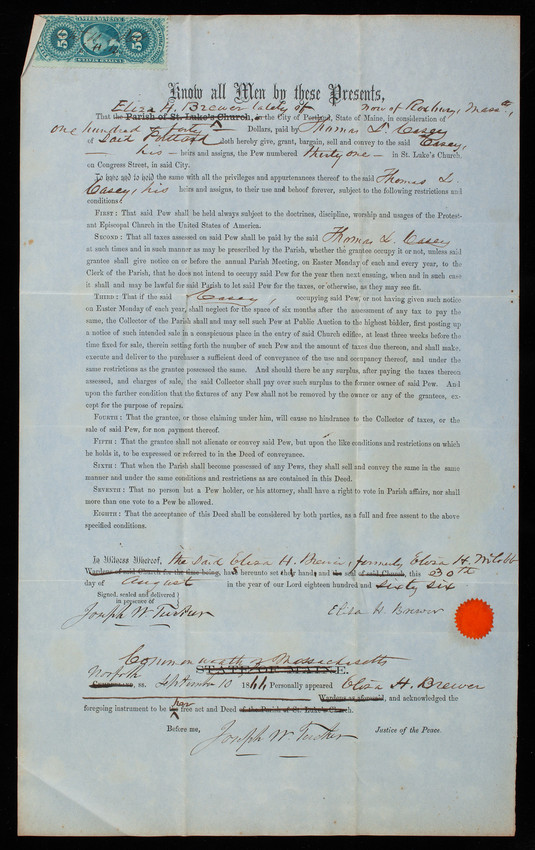 50 50
Know all Men by these Presents,
Eliza H. Brewer lately of now of Roxbury, Massts,
That the Parish of St. Luke's Church, in the City of Portland, State of Maine, in consideration of
one hundred forty Dollars, paid by Thomas L. Casey
of Said Portland doth hereby give, grant, bargain, sell and convey to the said Casey,
his heirs and assigns, the Pew numbered thirty one in St. Luke's Church,
on Congress Street, in said City.
To have and to hold the same with all the privileges and appurtenances thereof to the said Thomas L.
Casey, his heirs and assigns, to their use and behoof forever, subject to the following restrictions and
conditions:
First: That said Pew shall be held always subject to the doctrines, discipline, worship and usages of the Protest-
ant Episcopal Church in the United States of America.
Second: That all taxes assessed on said Pew shall be paid by the said Thomas L. Casey
at such times and in such manner as may be prescribed by the Parish, whether the grantee occupy it or not, unless said
grantee shall give notice on or before the annual Parish Meeting, on Easter Monday of each and every year, to the
Clerk of the Parish, that he does not intend to occupy said Pew for the year then next ensuing, when and in such case
it shall and may be lawful for said Parish to let said Pew for the taxes, or otherwise, as they may see fit.
Third: That if the said Casey, occupying said Pew, or not having given such notice
on Easter Monday of each year, shall neglect for the space of six months after the assessment of any tax to pay the
same, the Collector of the Parish shall and may sell such Pew at Public Auction to the highest bidder, first posting up
a notice of such intended sale in a conspicuous place in the entry of said Church edifice, at least three weeks before the
time fixed for sale, therein setting forth the number of such Pew and the amount of taxes due thereon, and shall make,
execute and deliver to the purchaser a sufficient deed of conveyance of the use and occupancy thereof, and under the
same restrictions as the grantee possessed the same. And should there be any surplus, after paying the taxes thereon
assessed, and charges of sale, the said Collector shall pay over such surplus to the former owner of said Pew. And
upon the further condition that the fixtures of any Pew shall not be removed by the owner or any of the grantees, ex-
cept for the purpose of repairs.
Fourth: That the grantee, or those claiming under him, will cause no hindrance to the Collector of taxes, or the
sale of said Pew, for non payment thereof.
Fifth: That the grantee shall not alienate or convey said Pew, but upon the like conditions and restrictions on which
he holds it, to be expressed or referred to in the Deed of conveyance.
Sixth: That when the Parish shall become possessed of any Pews, they shall sell and convey the same in the same
manner and under the same conditions and restrictions as are contained in this Deed.
Seventh: That no person but a Pew holder, or his attorney, shall have a right to vote in Parish affairs, nor shall
more than one vote to a Pew be allowed.
Eighth: That the acceptance of this Deed shall be considered by both parties, as a full and free assent to the above
specified conditions.
In Witness Whereof, the said Eliza H. Brewer, formerly Eliza H.
Wardens of said Church for the time being, has hereunto set hand and the seal of said Church, this 30th
day of August in the year of our Lord eighteen hundred and sixty six
Signed, sealed and delivered
in presence of
Joseph W Tucker Eliza H Brewer
Commonwealth of Massachusetts
STATE OF MAINE.
Norfolk
Cumberland, ss. September 10 1866 Personally appeared Eliza H. Brewer
Wardens as aforesaid, and acknowledged the
her
foregoing instrument to be free act and Deed of the Parish of St. Luke's Church.
Before me, Joseph W Tucker Justice of the Peace.